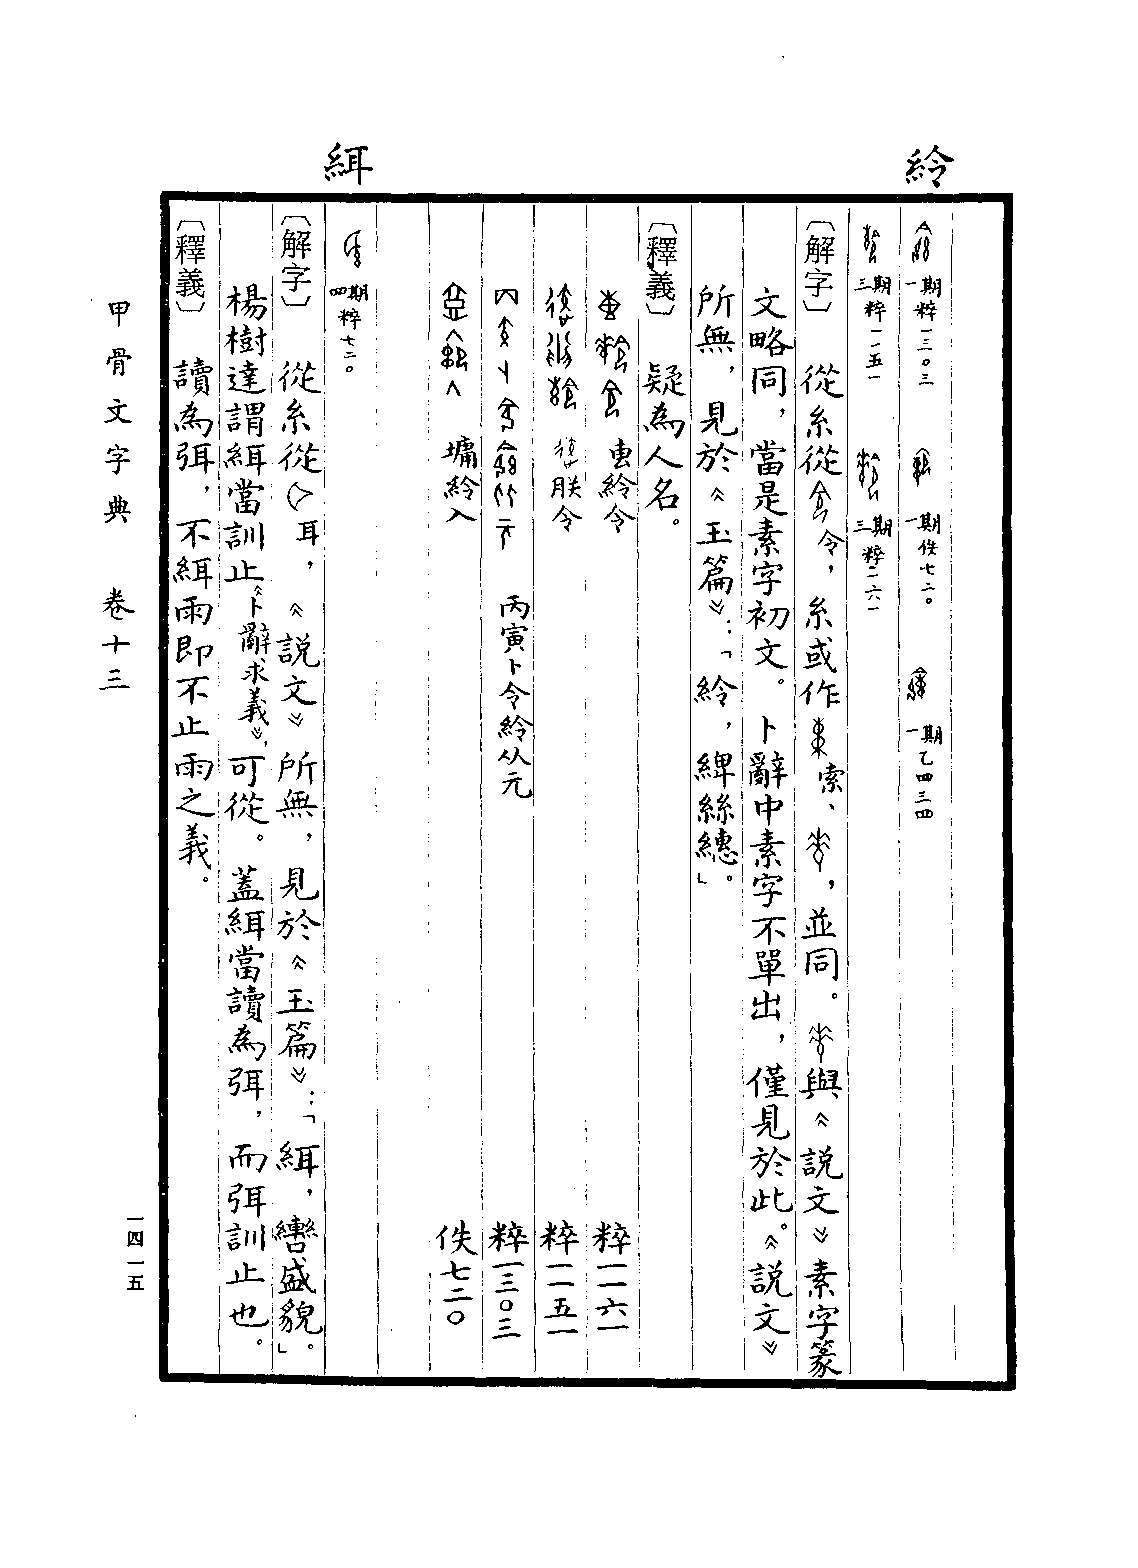 紟
一期 粹一三〇三 一期 佚七二〇 一期 乙四三四
三期 粹一一五一 三期 粹二六一
〔解字〕 從糸從令，糸或作索、，並同。與《説文》素字篆
文略同，當是素字初文。卜辭中素字不單出，僅見於此。《説文》
所無，見於《玉篇》：「紷，綼絲繐。」
〔釋義〕 疑為人名。
叀紷令 粹一一六一
朕令 粹一一五一
丙寅卜令紷从元 粹一三〇三
墉紷入 佚七二〇
緷
四期 粹七二〇
〔解字〕 從糸從耳，《説文》所無，見於《玉篇》：「絚，轡盛貌。」
楊樹達謂䋙當訓止《卜辭求義》，可從。蓋䋙當讀為弭，而弭訓止也。
〔釋義〕 讀為弭，不䋙雨即不止雨之義。
甲骨文字典 卷十三
一四一五